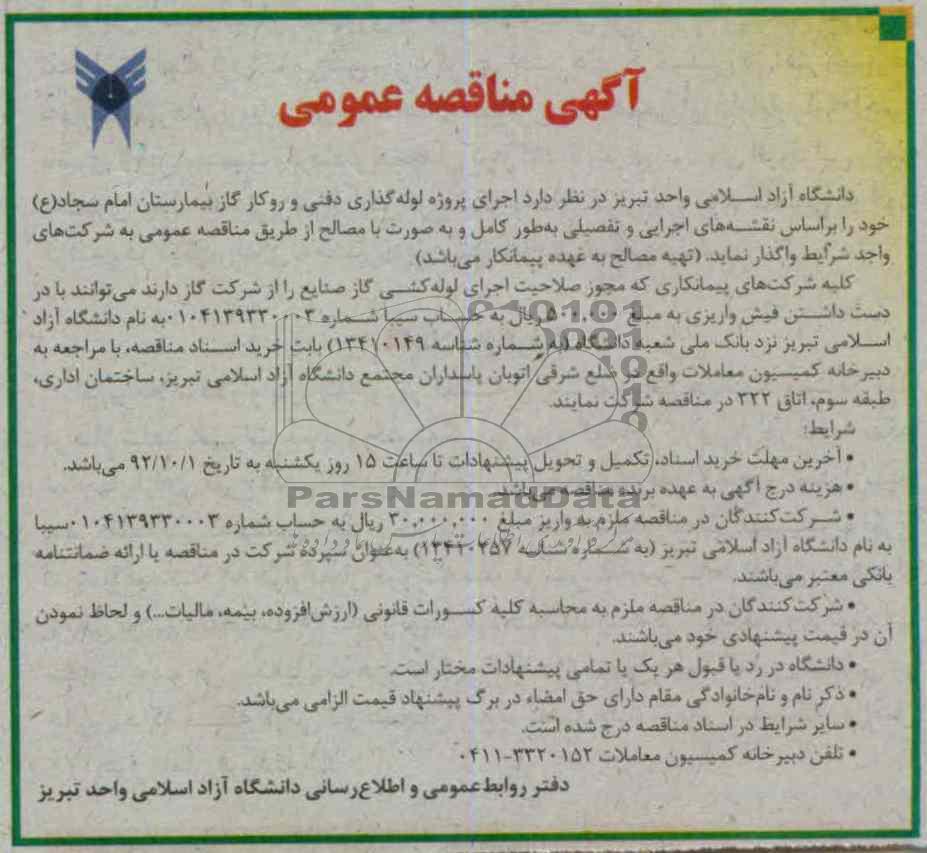 آگهی مناقصه عمومی
دانشگاه آزاد اسلامی واحد تبریز در نظر دارد اجرای پروژه لوله‌گذاری دفنی و روکار گاز بیمارستان امام سجاد(ع)
خود را براساس نقشه‌های اجرایی و تفصیلی به‌طور کامل و به صورت با مصالح از طریق مناقصه عمومی به شرکت‌های
واجد شرایط واگذار نماید. (تهیه مصالح به عهده پیمانکار می‌باشد)
کلیه شرکت‌های پیمانکاری که مجوز صلاحیت اجرای لوله‌کشی گاز صنایع را از شرکت گاز دارند می‌توانند با در
دست داشتن فیش واریزی به مبلغ ۵۰۰,۰۰۰ ریال به حساب سیبا شماره ۰۱۰۴۱۳۹۳۳۰۰۰۳ به نام دانشگاه آزاد
اسلامی تبریز نزد بانک ملی شعبه دانشگاه (به شماره شناسه ۱۳۴۱۰۱۴۹) بابت خرید اسناد مناقصه، با مراجعه به
دبیرخانه کمیسیون معاملات واقع در ضلع شرقی اتوبان پاسداران مجتمع دانشگاه آزاد اسلامی تبریز، ساختمان اداری،
طبقه سوم، اتاق ۳۲۲ در مناقصه شرکت نمایند.
شرایط:
• آخرین مهلت خرید اسناد، تکمیل و تحویل پیشنهادات تا ساعت ۱۵ روز یکشنبه به تاریخ ۹۲/۱۰/۱ می‌باشد.
• هزینه درج آگهی به عهده برنده مناقصه می‌باشد.
ParsNamadData
• شرکت‌کنندگان در مناقصه ملزم به واریز مبلغ ۳۰,۰۰۰,۰۰۰ ریال به حساب شماره ۰۱۰۴۱۳۹۳۳۰۰۰۳ سیبا
به نام دانشگاه آزاد اسلامی تبریز (به شماره شناسه ) به‌عنوان سپرده شرکت در مناقصه یا ارائه ضمانتنامه
بانکی معتبر می‌باشند.
• شرکت‌کنندگان در مناقصه ملزم به محاسبه کلیه کسورات قانونی (ارزش‌افزوده، بیمه، مالیات...) و لحاظ نمودن
آن در قیمت پیشنهادی خود می‌باشند.
• دانشگاه در رد یا قبول هر یک یا تمامی پیشنهادات مختار است.
• ذکر نام و نام‌خانوادگی مقام دارای حق امضاء در برگ پیشنهاد قیمت الزامی می‌باشد.
• سایر شرایط در اسناد مناقصه درج شده است.
• تلفن دبیرخانه کمیسیون معاملات ۳۳۲۰۱۵۲-۰۴۱۱
دفتر روابط عمومی و اطلاع‌رسانی دانشگاه آزاد اسلامی واحد تبریز